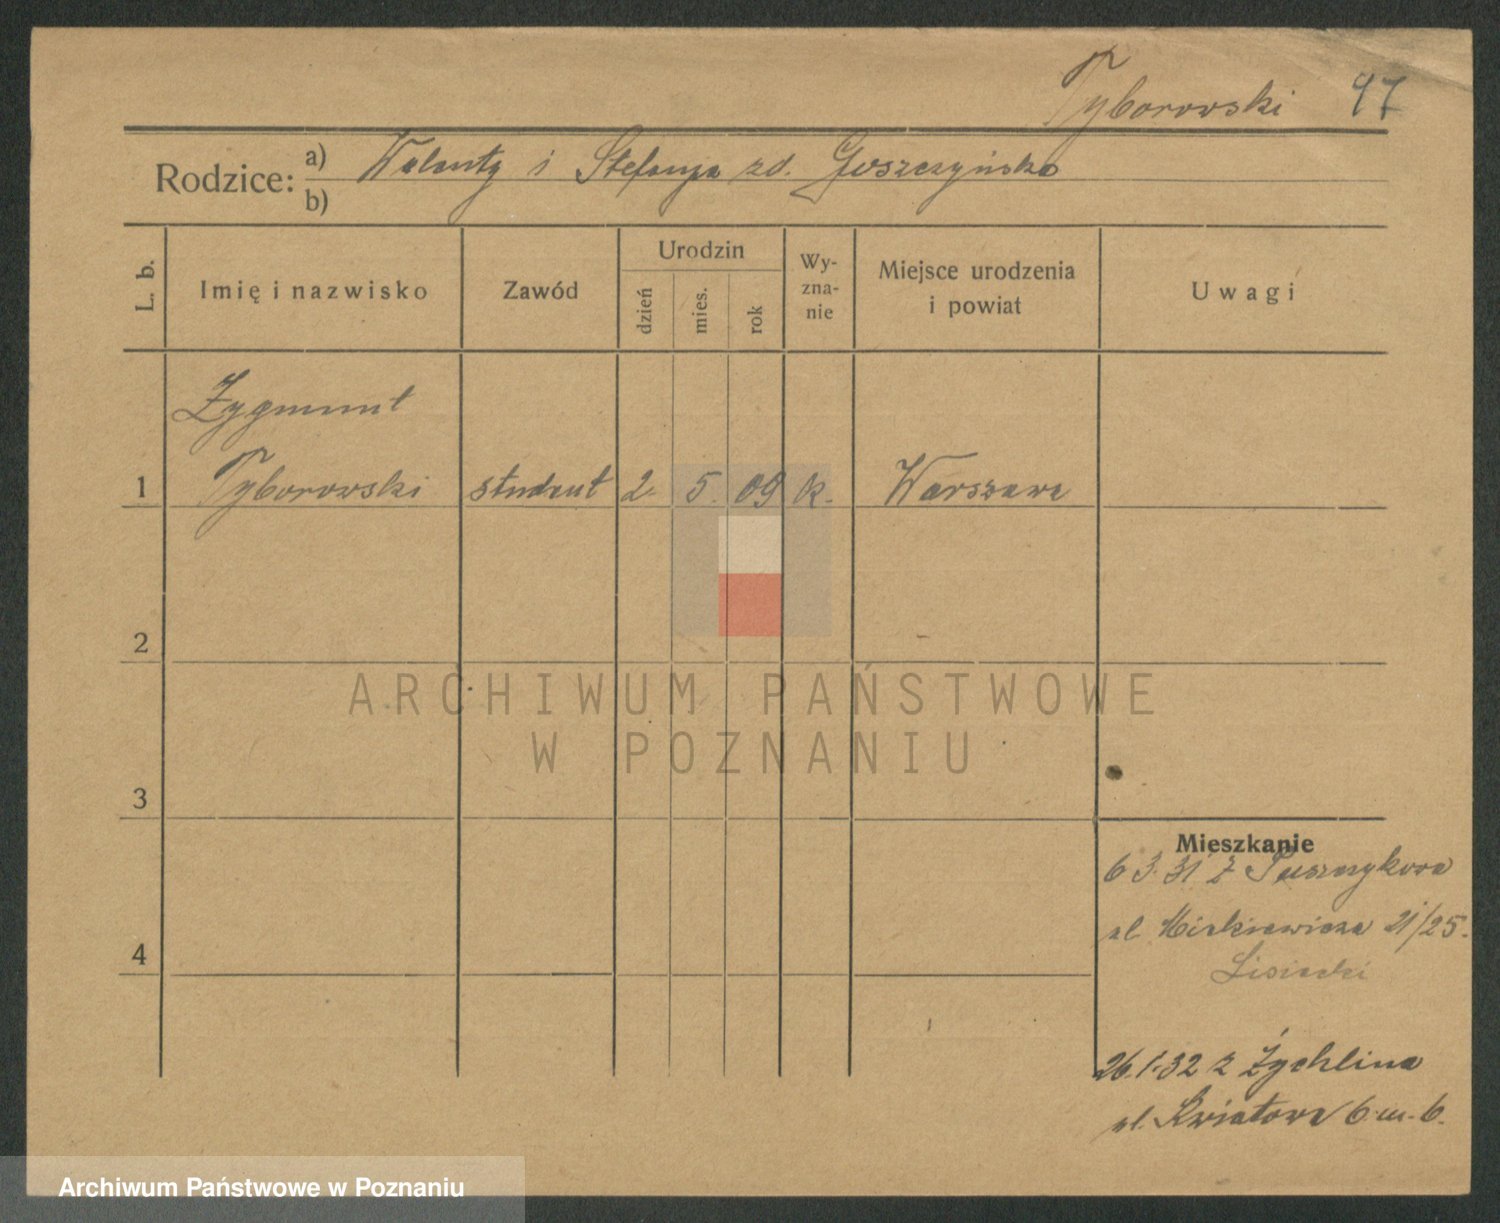 Tyborowski 97
Rodzice: a) Walenty i Stefanja zd. Goszczyńska
b)
L. b.
Imię i nazwisko
Zawód
Urodzin
dzień
mies.
rok
Wy-
zna-
nie
Miejsce urodzenia
i powiat
Uwagi
Zygmunt
1 Tyborowski student 2. 5. 09 k. Warszawa
2
3
4
ARCHIWUM PAŃSTWOWE
W POZNANIU
Mieszkanie
6 3. 31 z Puszczykowa
ul. Mickiewicza 21/25.
Lisiecki
26.1.32 z Żychlina
ul. Kwiatowa 6 m. 6.
Archiwum Państwowe w Poznaniu